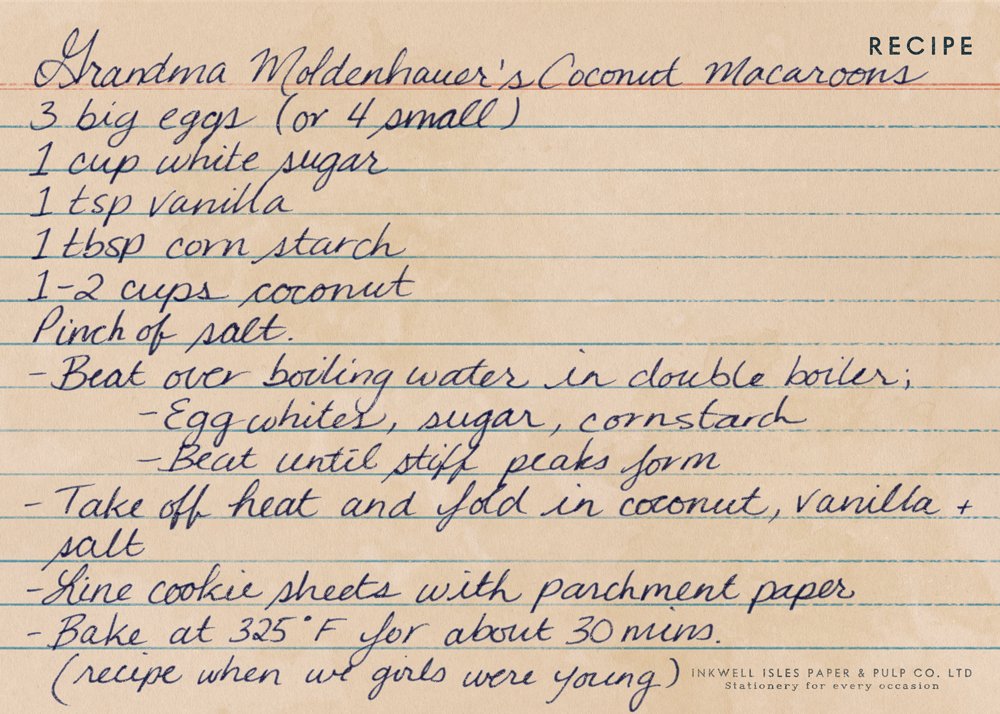 RECIPE
Grandma Moldenhauer's Coconut Macaroons
3 big eggs (or 4 small)
1 cup white sugar
1 tsp vanilla
1 tbsp corn starch
1-2 cups coconut
Pinch of salt.
- Beat over boiling water in double boiler;
- Egg whites, sugar, cornstarch
- Beat until stiff peaks form
- Take off heat and fold in coconut, vanilla +
salt
- Line cookie sheets with parchment paper
- Bake at 325°F for about 30 mins.
(recipe when we girls were young)
INKWELL ISLES PAPER & PULP CO. LTD
Stationery for every occasion